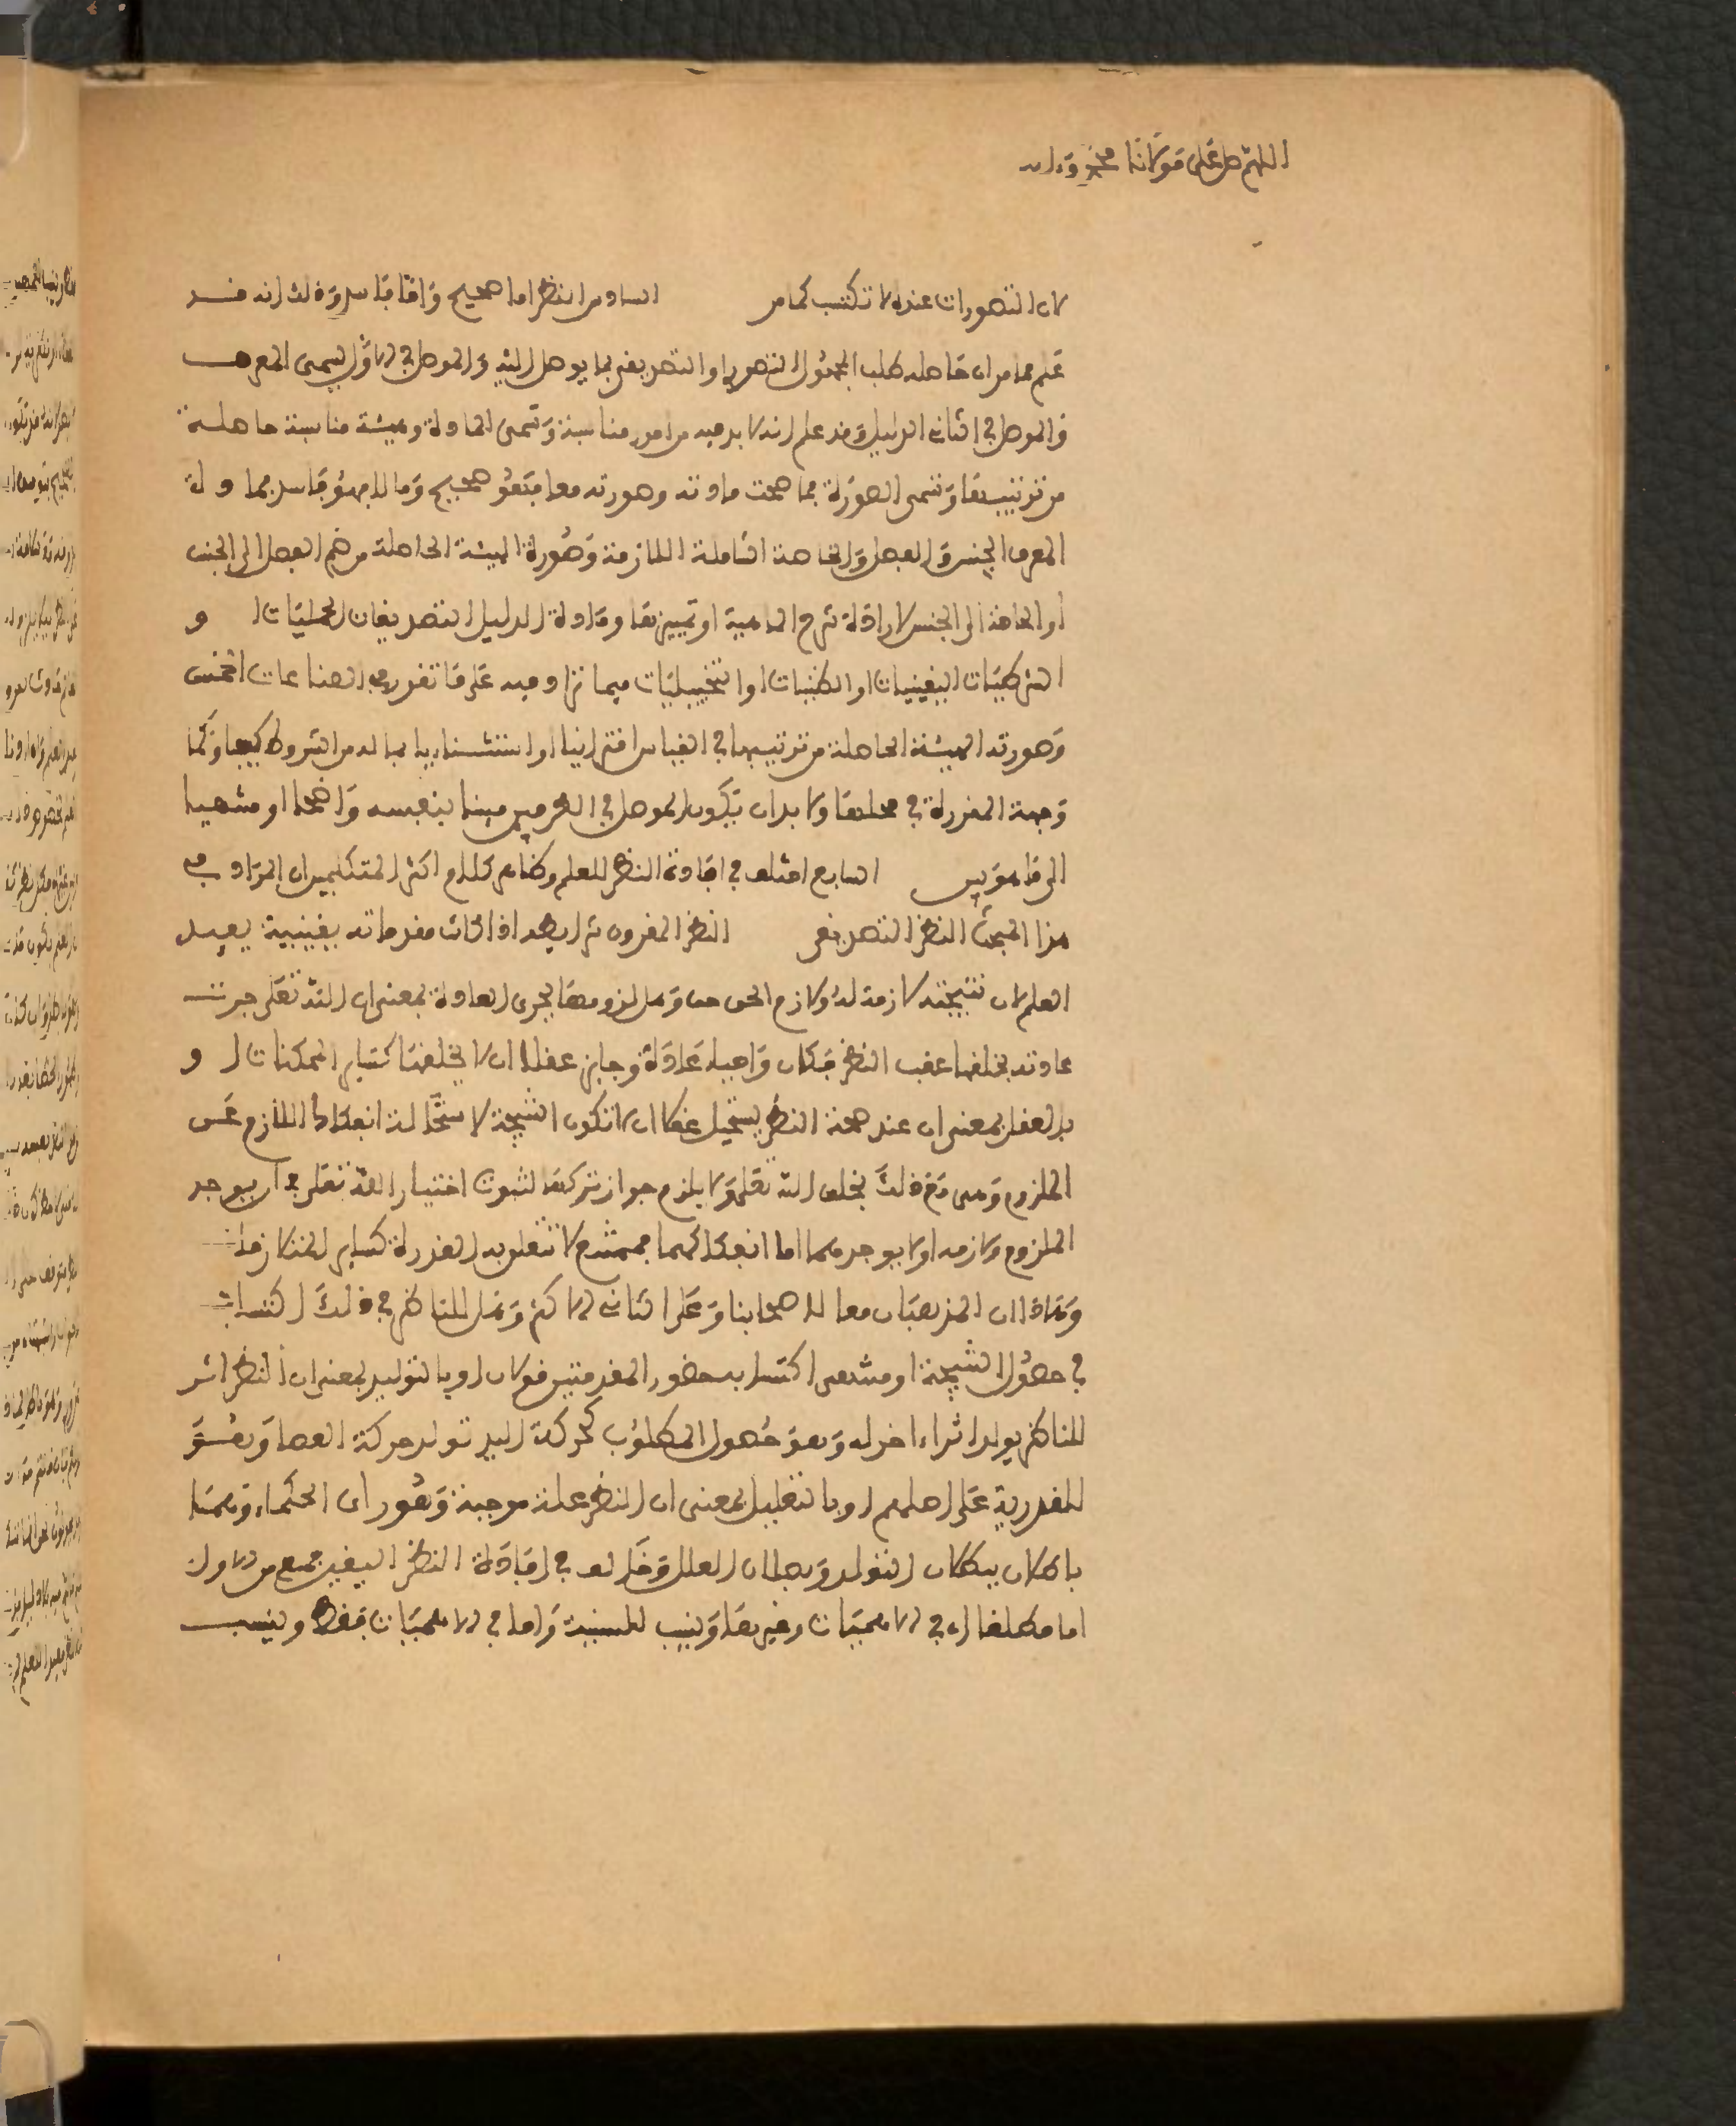 اللهم صل على مولانا محمد وءاله
لان التصورات عنده لا تكتسب كما مر السادس النظر اما صحيح واما فاسد وذلك انه قد
علم مما مر ان حاصله طلب المجهول التصوري او التصديقي بما يوصل اليه والموصل في الاول يسمى المعرف
والموصل في الثاني الدليل وقد علم انه لا بد فيه من امور مناسبة وتسمى المادة وهيئة مناسبة حاصلة
من ترتيبها وتسمى الصورة فما صحت مادته وصورته معا فهو صحيح وما لا فهو فاسد فمادة
المعرف الجنس والفصل والخاصة الشاملة اللازمة وصورة الهيئة الحاصلة من ضم الفصل الى الجنس
او الخاصة الى الجنس لارادة شرح الماهية او تمييزها ومادة الدليل التصديقات الحمليات او
الشرطيات اليقينيات او الظنيات او التخييليات فيما تراد فيه على ما تقرر في الصناعات الخمس
وصورته الهيئة الحاصلة من ترتيبها في القياس اقترانيا او استثنائيا بما له من الشروط كيفا وكما
وجهة المقررة في محلها ولا بد ان يكون الموصل في القسمين مبينا بنفسه واضحا او منتهيا
الى ما هو بين السابع اختلف في افادة النظر للعلم وظاهر كلام اكثر المتكلمين ان المراد في
هذا المبحث النظر التصديقي النظر المقرون شرايطه اذا كانت مقدماته يقينية يفيد
العلم لان نتيجته لازمة له ولازم الحق حق وهل لزومها بجرى العادة بمعنى ان الله تعلى جرت
عادته بخلقها عقب النظر فكان واجبا عادة وجايز عقلا ان لا يخلقها كساير الممكنات او
بالعقل بمعنى ان عند صحة النظر يستحيل عقلا ان لا تكون النتيجة لاستحالة انفكاك اللازم عن
الملزوم وهي مع ذلك بخلق الله تعلى ولا يلزم جواز تركها لثبوت اختيار الله تعلى في ان يوجد
الملزوم ولازمه او لا يوجدهما اما انفكاكهما فممتنع لا تتعلق به القدرة كساير المتلازمات
وهاذان المذهبان معا لاصحابنا وعلى الثاني الاكثر وهل للناظر في ذلك اكتساب
في حصول النتيجة او منتهى اكتسابه حضور المقدمتين قولان او بالتوليد بمعنى ان النظر اثر
للناظر يولد اثرا ءاخر له وهو حصول المطلوب كحركة اليد تولد حركة العصا وهو
للقدرية على اصلهم او بالتعليل بمعنى ان النظر علة موجبة وهو راي الحكماء وهما
باطلان ببطلان التولد وبطلان العلل وخالف في افادة النظر اليقين جمع من الاوايل
اما مطلقا اي في الالهيات وغيرها وينسب للسمنية واما في الالهيات فقط وينسب